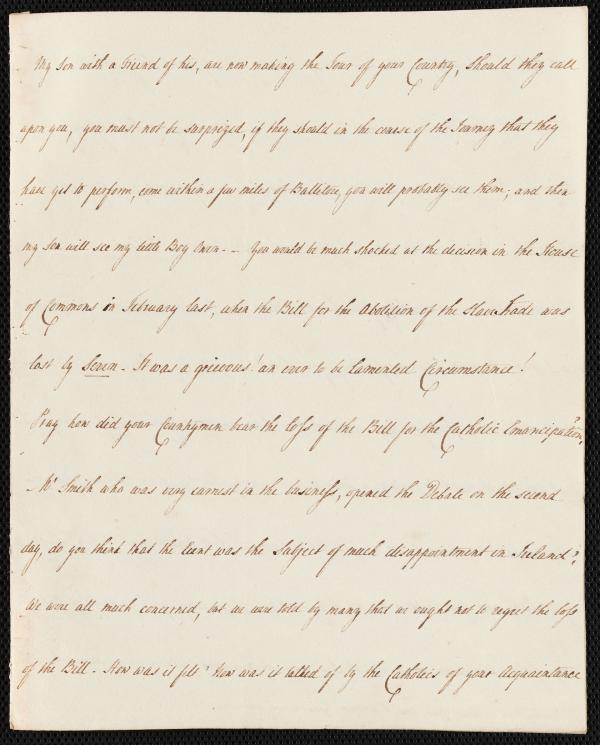 My Son with a Friend of his, are now making the Tour of your Country, should they call
upon you, you must not be surprized, if they should in the course of the Journey that they
have yet to perform, come within a few miles of Ballitore, you will probably see them; and then
my Son will see my little Boy Owen - - You would be much shocked at the decision in the House
of Commons in February last, when the Bill for the Abolition of the Slave Trade was
lost by Seven - It was a grievous! an ever to be lamented Circumstance!
Pray how did your Countrymen bear the loss of the Bill for the Catholic Emancipation?
Mr Smith who was very earnest in the business, opened the Debate on the second
day, do you think that the Event was the Subject of much disappointment in Ireland?
We were all much concerned, but we were told by many that we ought not to regret the loss
of the Bill - How was it felt? How was it talked of by the Catholics of your Acquaintance